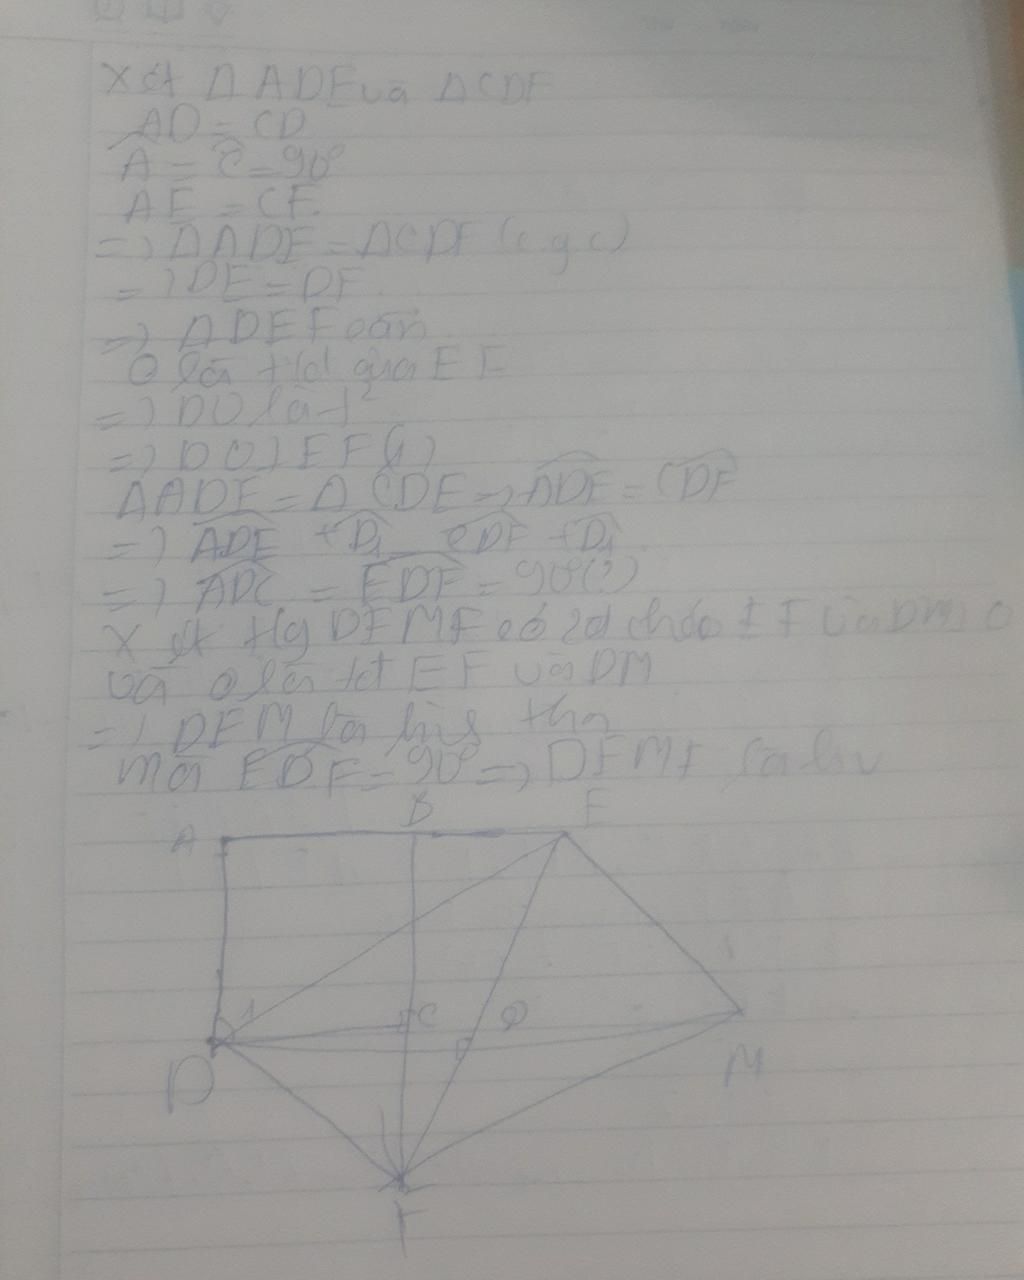 Xét ΔADE và ΔCDF
AD = CD
Â = Ĉ = 90°
AE = CF
=) ΔADE = ΔCDF (c g c)
=) DE = DF
=) ΔDEF cân
O là tđ của EF
=) DO là t²
=) DO ⊥ EF (1)
ΔADE = ΔCDF => ADE = CDF
=) ADE + D1 = CDF + D1
=) ADC = EDF = 90° (2)
Xét tg DFME có 2đ chéo EF và DM
và O là tđ EF và DM
=) DFM là
mà EDF = 90° => DFME là hv
B E
A
1 C O
D M
F